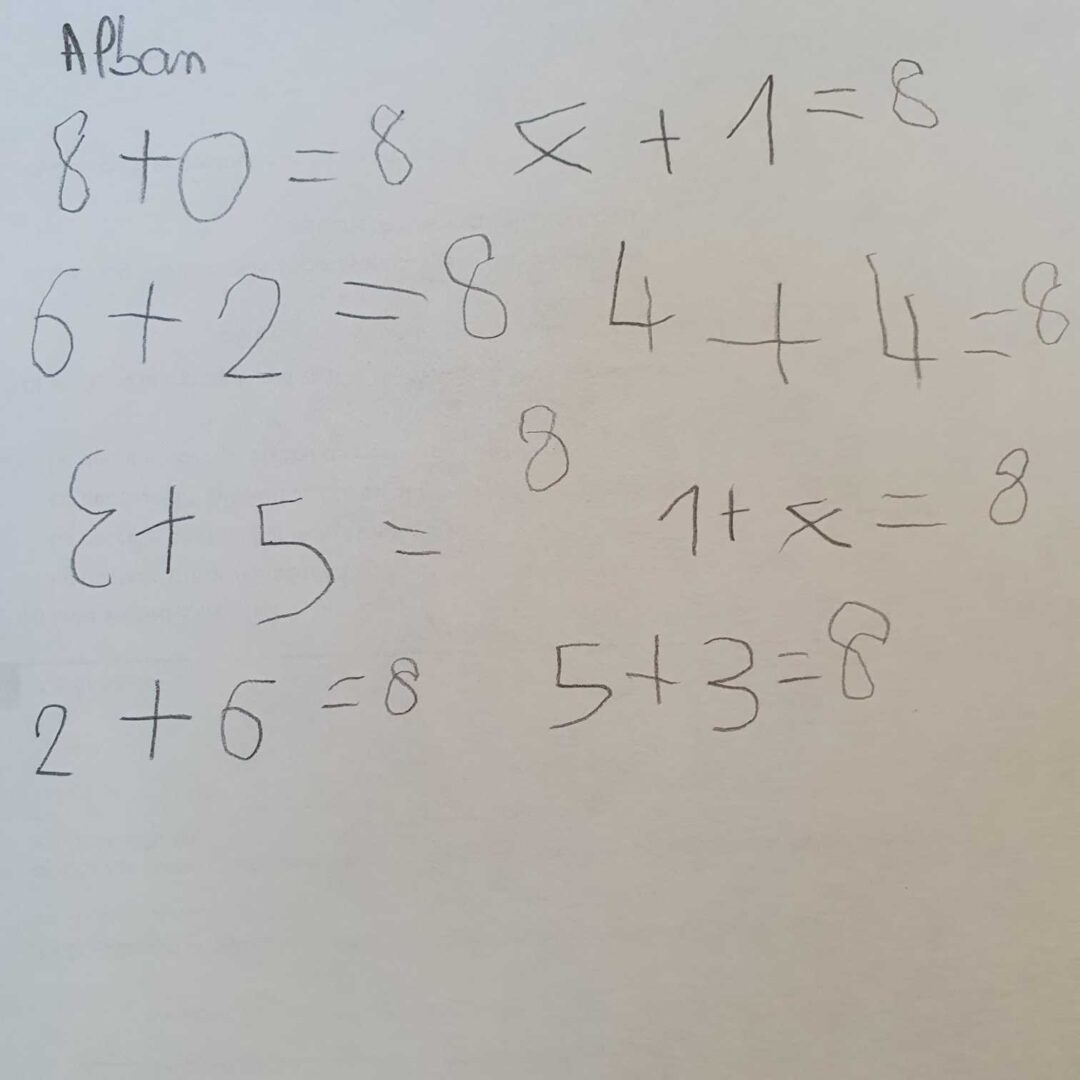 Alban
8+0=8 7+1=8
6+2=8 4+4=8
3+5=8 1+7=8
2+6=8 5+3=8